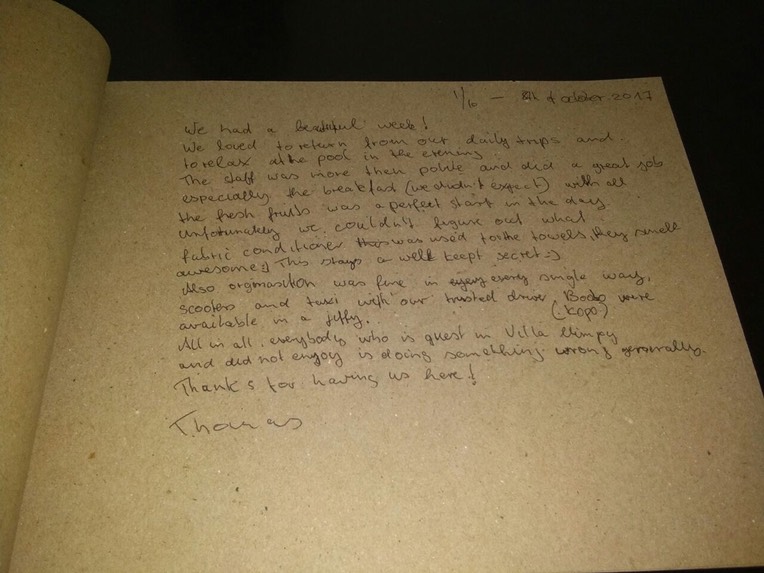 1/10 - 8th of october 2017
We had a beautiful week!
We loved to return from our daily trips and
to relax at the pool in the evening.
The staff was more then polite and did a great job
especially the breakfast (we didn't expect) with all
the fresh fruits was a perfect start in the day.
Unfortunately we couldn't figure out what
fabric conditioner was used for the towels, they smell
awesome:) This stays a well keept secret:-)
Also orgmasition was fine in every single way,
scooters and taxi with our trusted driver were
available in a jiffy. (Kopo)
All in all: everybody who is guest in Villa
and did not enjoy is doing something wrong generally.
Thanks for having us here!
Thomas